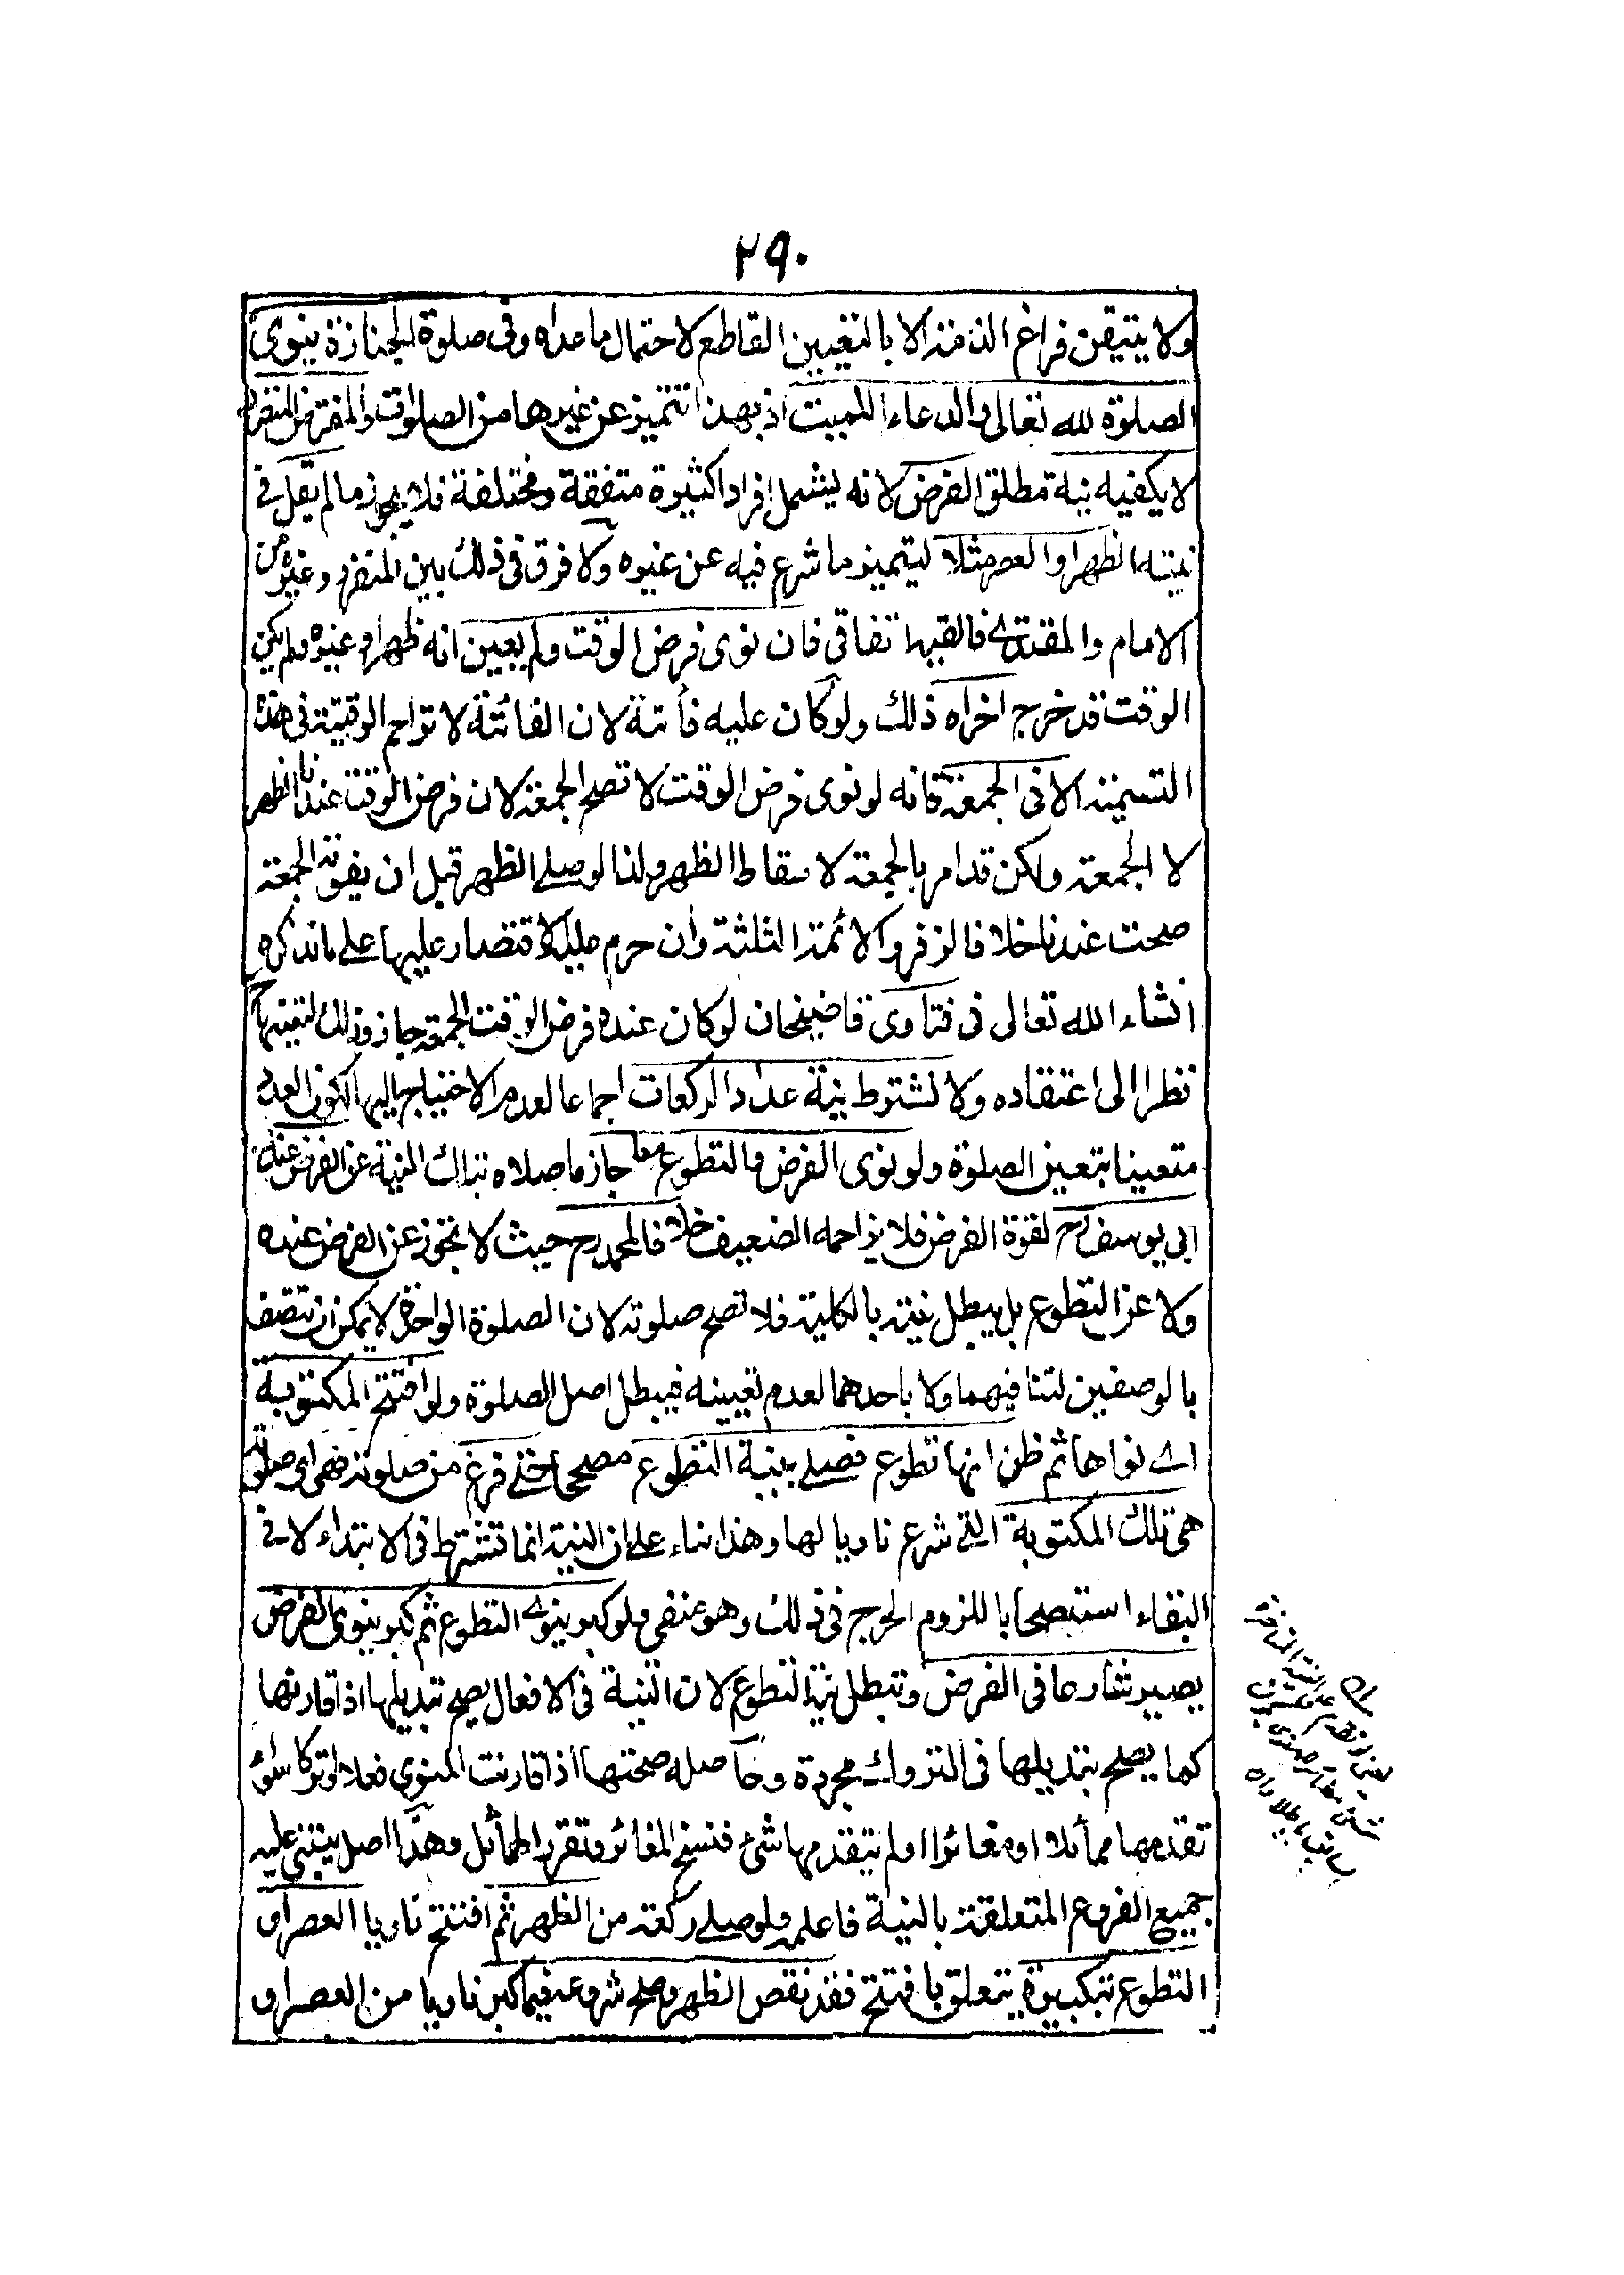 ٢٩٠
ولا يتيقن فراغ الذمة الا بالتعيين القاطع لاحتمال ما عداه وفى صلوة الجنازة ينوى
الصلوة لله تعالى والدعاء للميت اذ بهذا تتميز عن غيرها من الصلوات والمفترض المنفرد
لا يكفيه نية مطلق الفرض لانه يشمل افرادا كثيرة متفقة ومختلفة فلا يجوز ما لم يقل فى
نيته الظهر او العصر مثلا ليتميز ما شرع فيه عن غيره ولا فرق فى ذلك بين المنفرد وغيره من
الامام والمقتدى فالقيد اتفاقى فان نوى فرض الوقت ولم يعين انه ظهر او غيره ولم يكن
الوقت قد خرج اجزاه ذلك ولو كان عليه فائتة لان الفائتة لا تزاحم الوقتية فى هذه
التسمية الا فى الجمعة فانه لو نوى فرض الوقت لا تصح الجمعة لان فرض الوقت عندنا الظهر
لا الجمعة ولكن قد امر بالجمعة لاسقاط الظهر ولذا لو صلى الظهر قبل ان يفوته الجمعة
صحت عندنا خلافا لزفر والائمة الثلثة وان حرم عليه الاقتصار عليها على ما نذكره
انشاء الله تعالى فى فتاوى قاضيخان لو كان عنده فرض الوقت الجمعة جاز وذلك لتعينها ح
نظرا الى اعتقاده ولا تشترط نية عدد الركعات اجماعا لعدم الاحتياج اليها لكون العدد
متعينا بتعين الصلوة ولو نوى الفرض والتطوع معا جاز ما صلاه بتلك النية عن الفرض عند
ابى يوسف رح لقوة الفرض فلا يزاحمه الضعيف خلافا لمحمد رح حيث لا تجوز عن الفرض عنده
ولا عن التطوع بل يبطل نيته بالكلية فلا تصح صلوته لان الصلوة الواحدة لا يمكن ان تتصف
بالوصفين لتنافيهما ولا باحدهما لعدم تعيينه فيبطل اصل الصلوة ولو افتتح المكتوبة
اى نواها ثم ظن انها تطوع فصلى بنية التطوع مصححا حتى فرغ من صلوته فهى اى صلوته
هى تلك المكتوبة التى شرع ناويا لها وهذا بناء على ان النية انما تشترط فى الابتداء لا فى
البقاء استصحابا للزوم الحرج فى ذلك وهو منفى ولو كبر ينوى التطوع ثم كبر ينوى الفرض
يصير شارعا فى الفرض وتبطل نية التطوع لان النية فى الافعال يصح تبديلها اذا قارنتها
كما يصح تبديلها فى التروك مجردة وحاصله صحتها اذا قارنت المنوى فعلا او تركا سواء
تقدمها مماثلا او مغائرا او لم يتقدمها شئ فنسخ المغائر وتقرر المماثل وهذا اصل يبتنى عليه
جميع الفروع المتعلقة بالنية فاعلمه ولو صلى ركعة من الظهر ثم افتتح ناويا العصر او
التطوع بتكبيرة يتعلق بافتتح فقد نقض الظهر وصح شروعه فيما كبر ناويا من العصر او